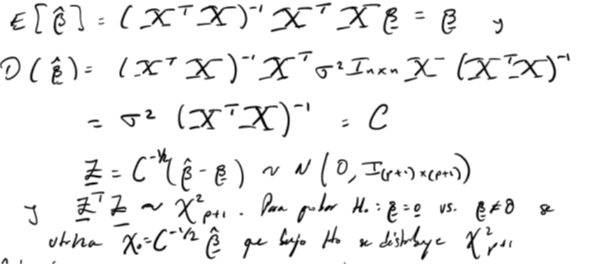 E[β̂] = (XᵀX)⁻¹ XᵀXβ = β y
D(β̂) = (XᵀX)⁻¹ Xᵀ σ² Iₙₓₙ X⁻ (XᵀX)⁻¹
= σ² (XᵀX)⁻¹ = C
Z = C^{-1/2}(β̂ - β) ~ N(0, I_{(p+1)×(p+1)})
y ZᵀZ ~ χ²_{p+1}. Para probar H₀: β = 0 vs. β ≠ 0 se
utiliza χ₀ = C^{-1/2} β̂ que bajo H₀ se distribuye χ²_{p+1}